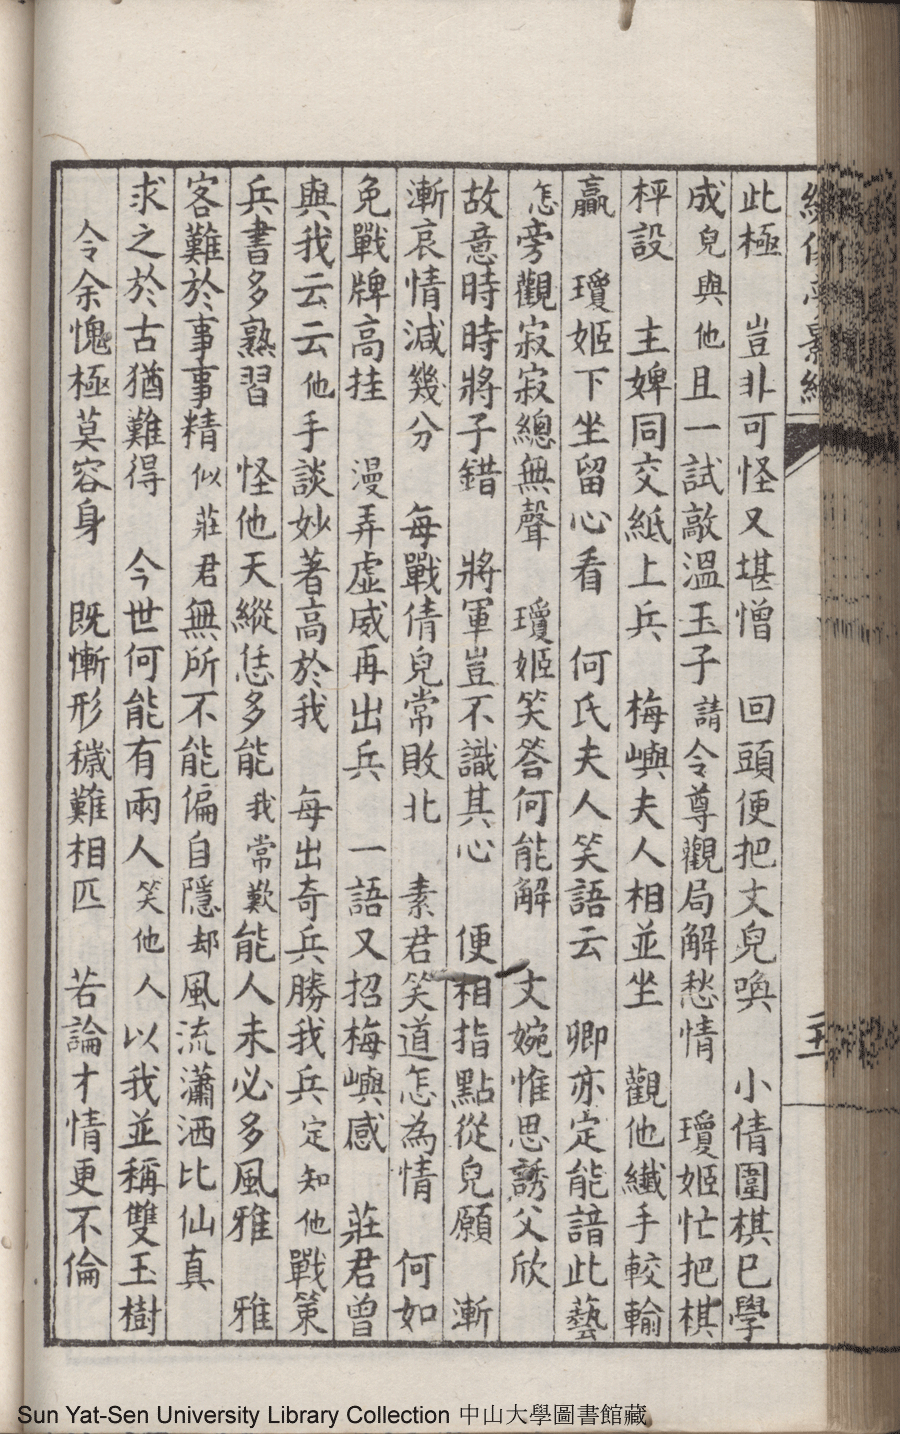 此極　豈非可怪又堪憎　回頭便把文皃喚　小倩圍棋已學
成皃與他且一試敲溫玉子請令尊觀局解愁情　瓊姬忙把棋
枰設　主婢同交紙上兵　梅嶼夫人相並坐　觀他纖手較輸
贏　瓊姬下坐留心看　何氏夫人笑語云　卿亦定能諳此藝
怎旁觀寂寂總無聲　瓊姬笑荅何能解　文婉惟思誘父欣
故意時時將子錯　將軍豈不識其心　便相指點從皃願　漸
漸哀情減幾分　每戰倩皃常敗北　素君笑道怎為情　何如
免戰牌高挂　漫弄虛威再出兵　一語又招梅嶼感　莊君曾
與我云云他手談妙著高於我　每出奇兵勝我兵定知他戰策
兵書多熟習　怪他天縱恁多能我常歎能人未必多風雅　雅
客難於事事精似莊君無所不能偏自隱却風流瀟洒比仙真
求之於古猶難得　今世何能有兩人笑他人以我並稱雙玉樹
令余愧極莫容身　既慚形穢難相匹　若論才情更不倫
Sun Yat-Sen University Library Collection 中山大學圖書館藏